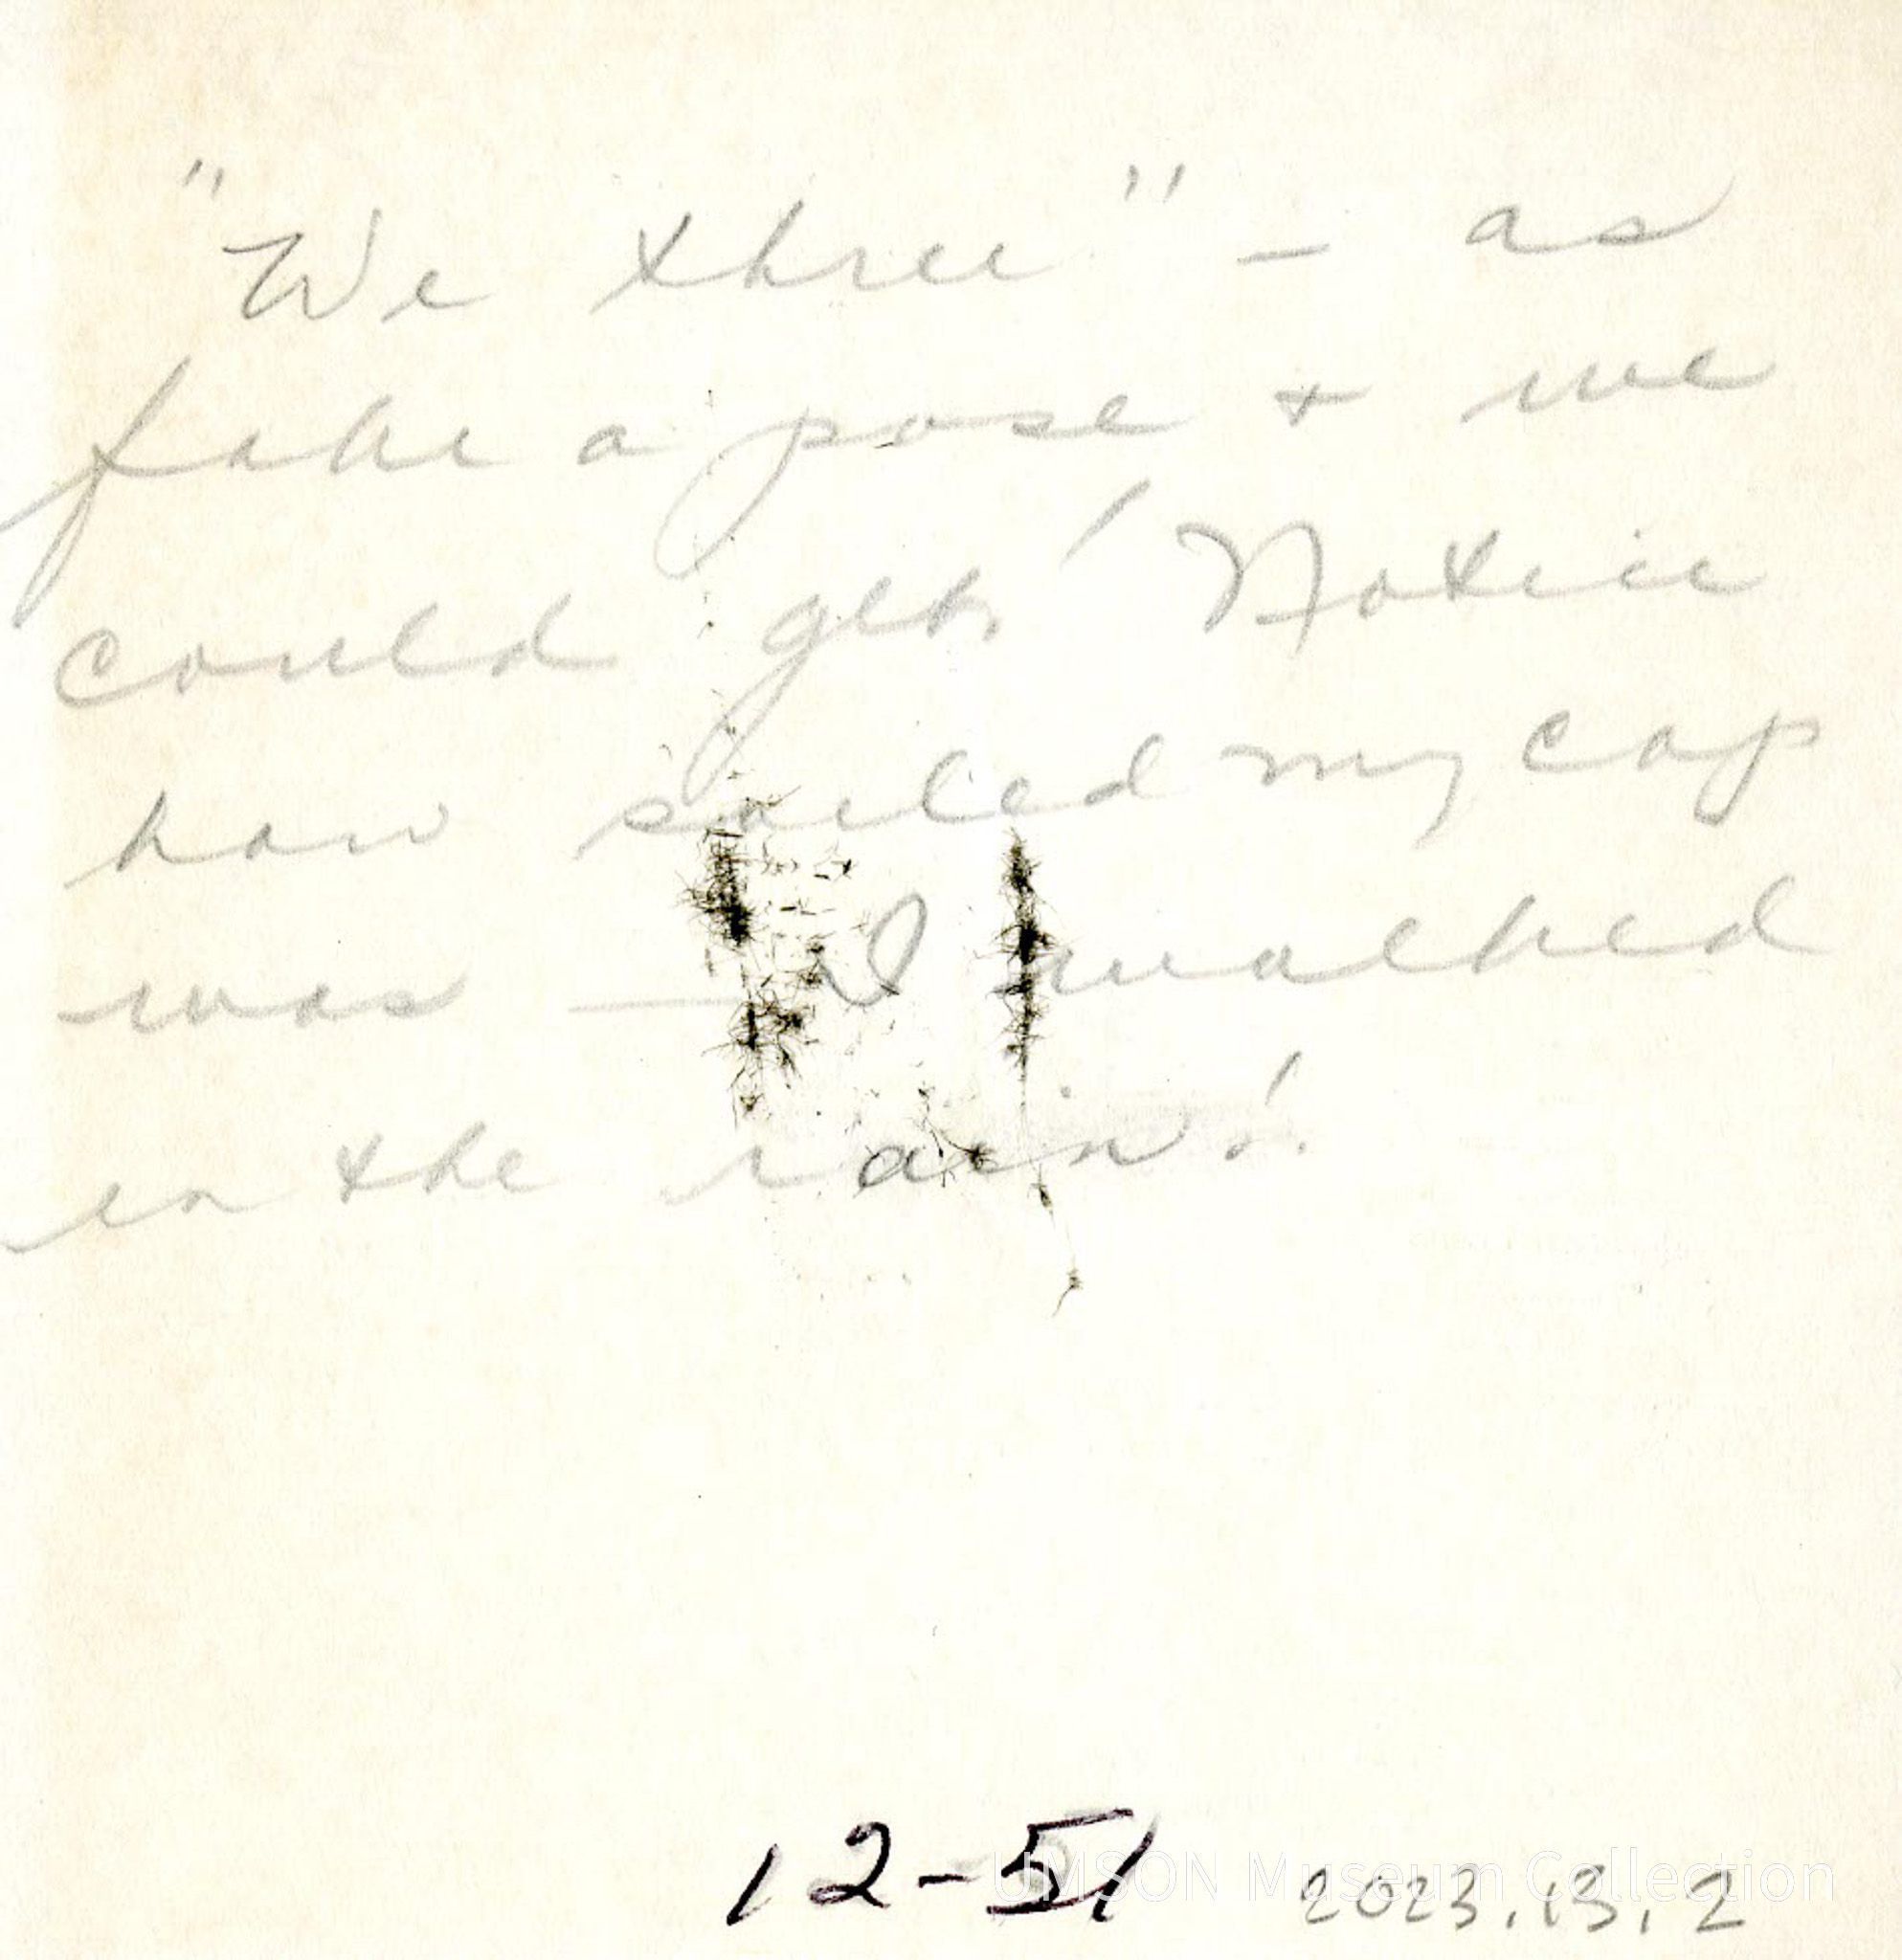 "We three" – as
fake a pose + we
could get! Notice
how soiled my cap
was — I walked
in the rain!
12-51
2023.13.2
UMSON Museum Collection